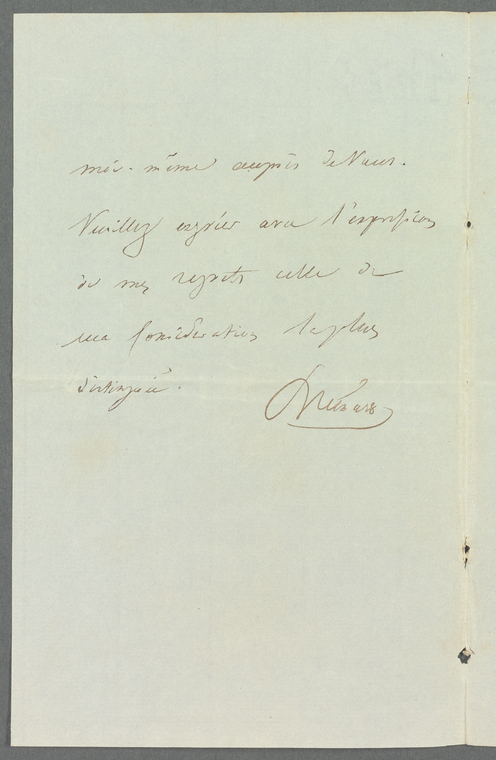 moi-même auprès de Vous.
Veuillez agréer avec l'expression
de mes regrets celle de
ma Considération la plus
distinguée.